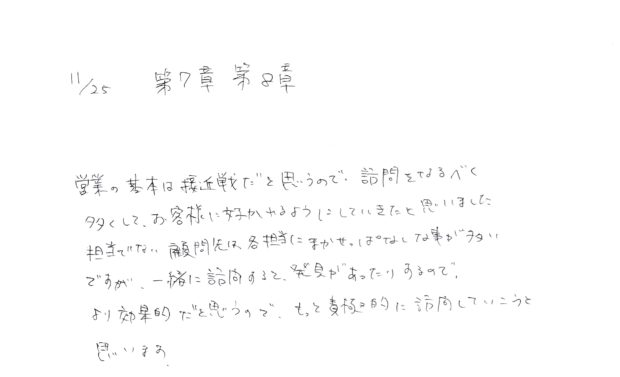 11/25 第7章 第8章
営業の基本は接近戦だと思うので、訪問をなるべく
多くして、お客様に好かれるようにしていきたいと思いました
担当でない顧問先は各担当にまかせっぱなしな事が多い
ですが、一緒に訪問すると、発見があったりするので、
より効果的だと思うので、もっと積極的に訪問していこうと
思います。